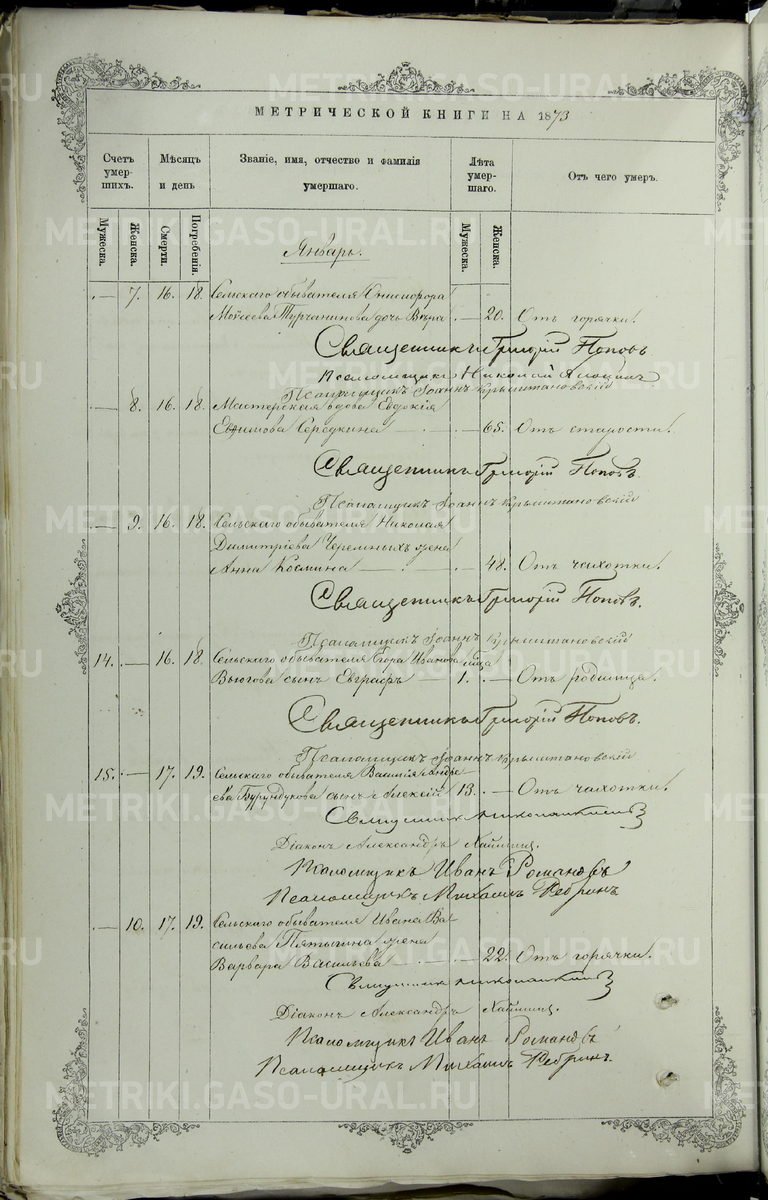 МЕТРИЧЕСКОЙ КНИГИ НА 1873
Счет умер- ших.
Мѣсяцъ и день
Званіе, имя, отчество и фамилія умершаго.
Лѣта умер- шаго.
Отъ чего умеръ.
Мужеска. Женска. Смерти. Погребенія. Мужеска. Женска.
Январь.
— 7. 16. 18. Сельскаго обывателя Онисифора
Моѵсеева Турчанинова дочь Вѣра — 20. Отъ горячки.
Священникъ Григорій Поповъ
Псаломщикъ Николай
Псаломщикъ Іоаннъ Крыштановскій
— 8. 16. 18. Мастерская вдова Евдокія
Ефимова Середкина — — 65. Отъ старости.
Священникъ Григорій Поповъ.
Псаломщикъ Іоаннъ Крыштановскій
— 9. 16. 18. Сельскаго обывателя Николая
Димитріева Черемныхъ жена
Анна Космина — — 48. Отъ чахотки.
Священникъ Григорій Поповъ.
Псаломщикъ Іоаннъ Крыштановскій
14. — 16. 18. Сельскаго обывателя Егора Иванова
Вьюгова сынъ Евграфъ — 1. — Отъ родимца.
Священникъ Григорій Поповъ.
Псаломщикъ Іоаннъ Крыштановскій
15. — 17. 19. Сельскаго обывателя Василія Андре
ева Бурундукова сынъ Алексій 13. — Отъ чахотки.
Священникъ
Діаконъ Александръ
Псаломщикъ Иванъ Романовъ
Псаломщикъ Михаилъ Ребринъ
— 10. 17. 19. Сельскаго обывателя Ивана Ва
сильева Пятыгина жена
Варвара Васильева — — 22. Отъ горячки.
Священникъ
Діаконъ Александръ
Псаломщикъ Иванъ Романовъ
Псаломщикъ Михаилъ Ребринъ.
METRIKI.GASO-URAL.RU